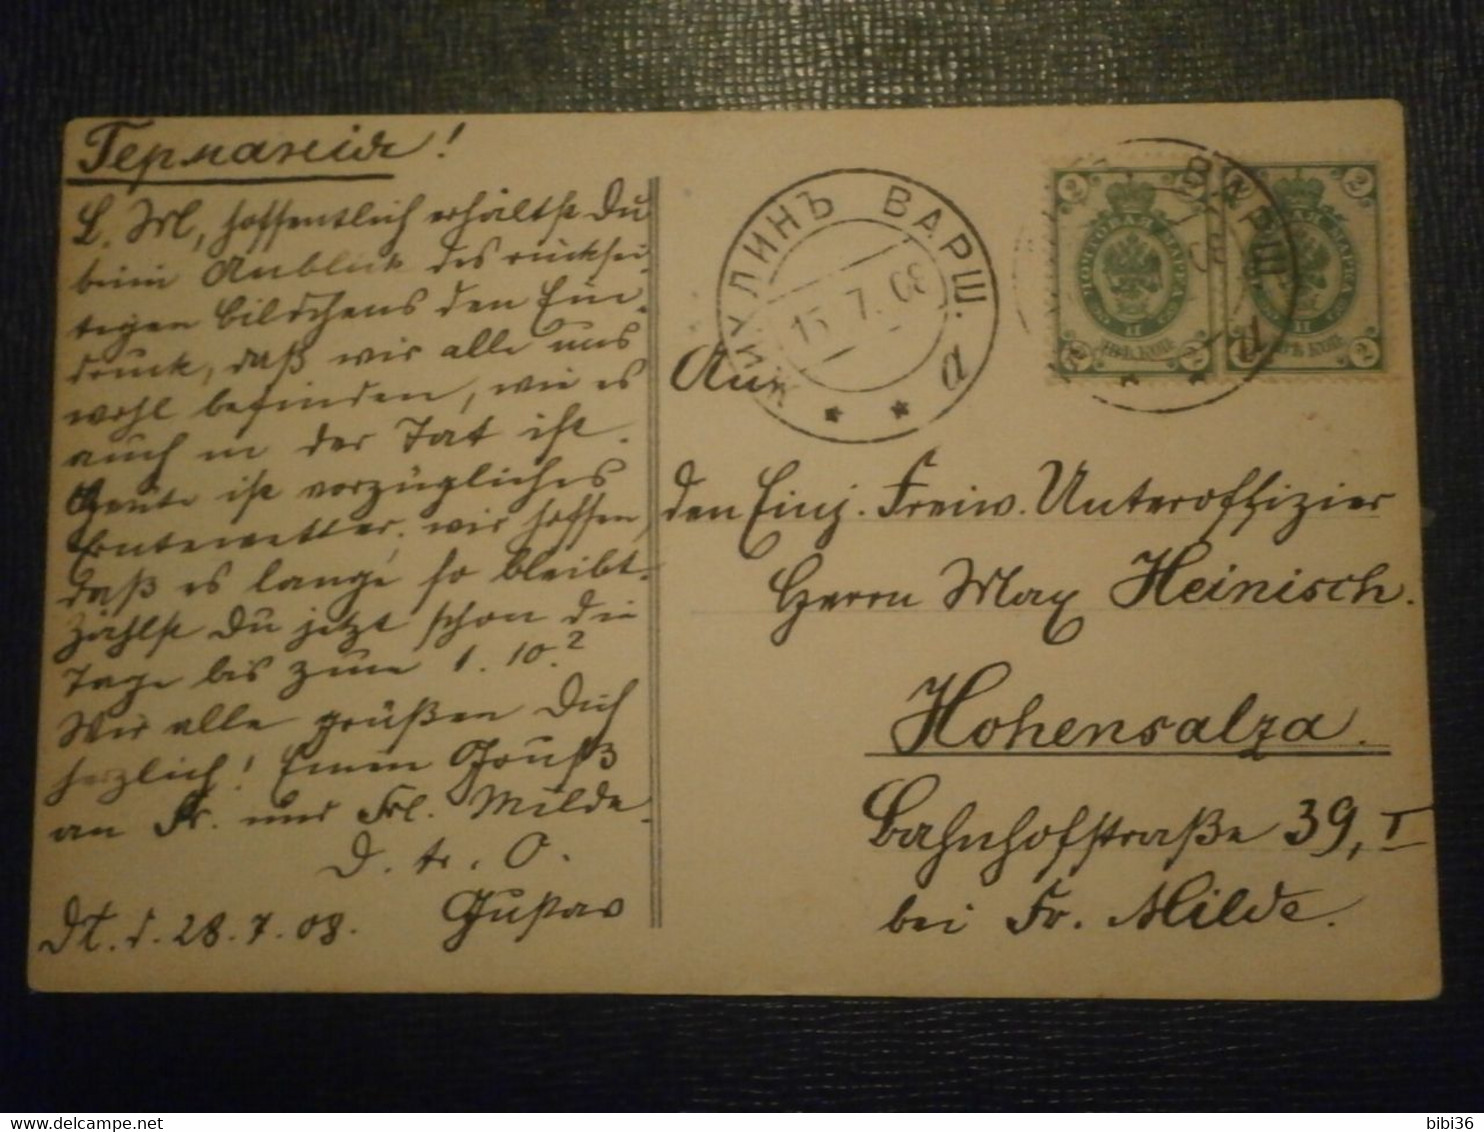 Германія!
L. M, hoffentlich erhältst Du
beim Anblick des rücksei-
tigen Bildchens den Ein-
druck, daß wir alle uns
wohl befinden, wie es
auch in der Tat ist.
Heute ist vorzügliches
Erntewetter; wir hoffen,
daß es lange so bleibt.
Zählst Du jetzt schon die
Tage bis zum 1. 10.?
Wir alle grüßen Dich
herzlich! Einen Gruß
an Fr. und Frl. Milde.
D. tr. O.
Gustav
28. 7. 08.
ВАРШ. а
15 7. 08
ВАРШ. а
2 2
ПОЧТОВАЯ МАРКА
ДВѢ КОП.
2 2
An
den Einj. Freiw. Unteroffizier
Herrn Max Heinisch.
Hohensalza.
Bahnhofstraße 39, I
bei Fr. Milde.
bibi36